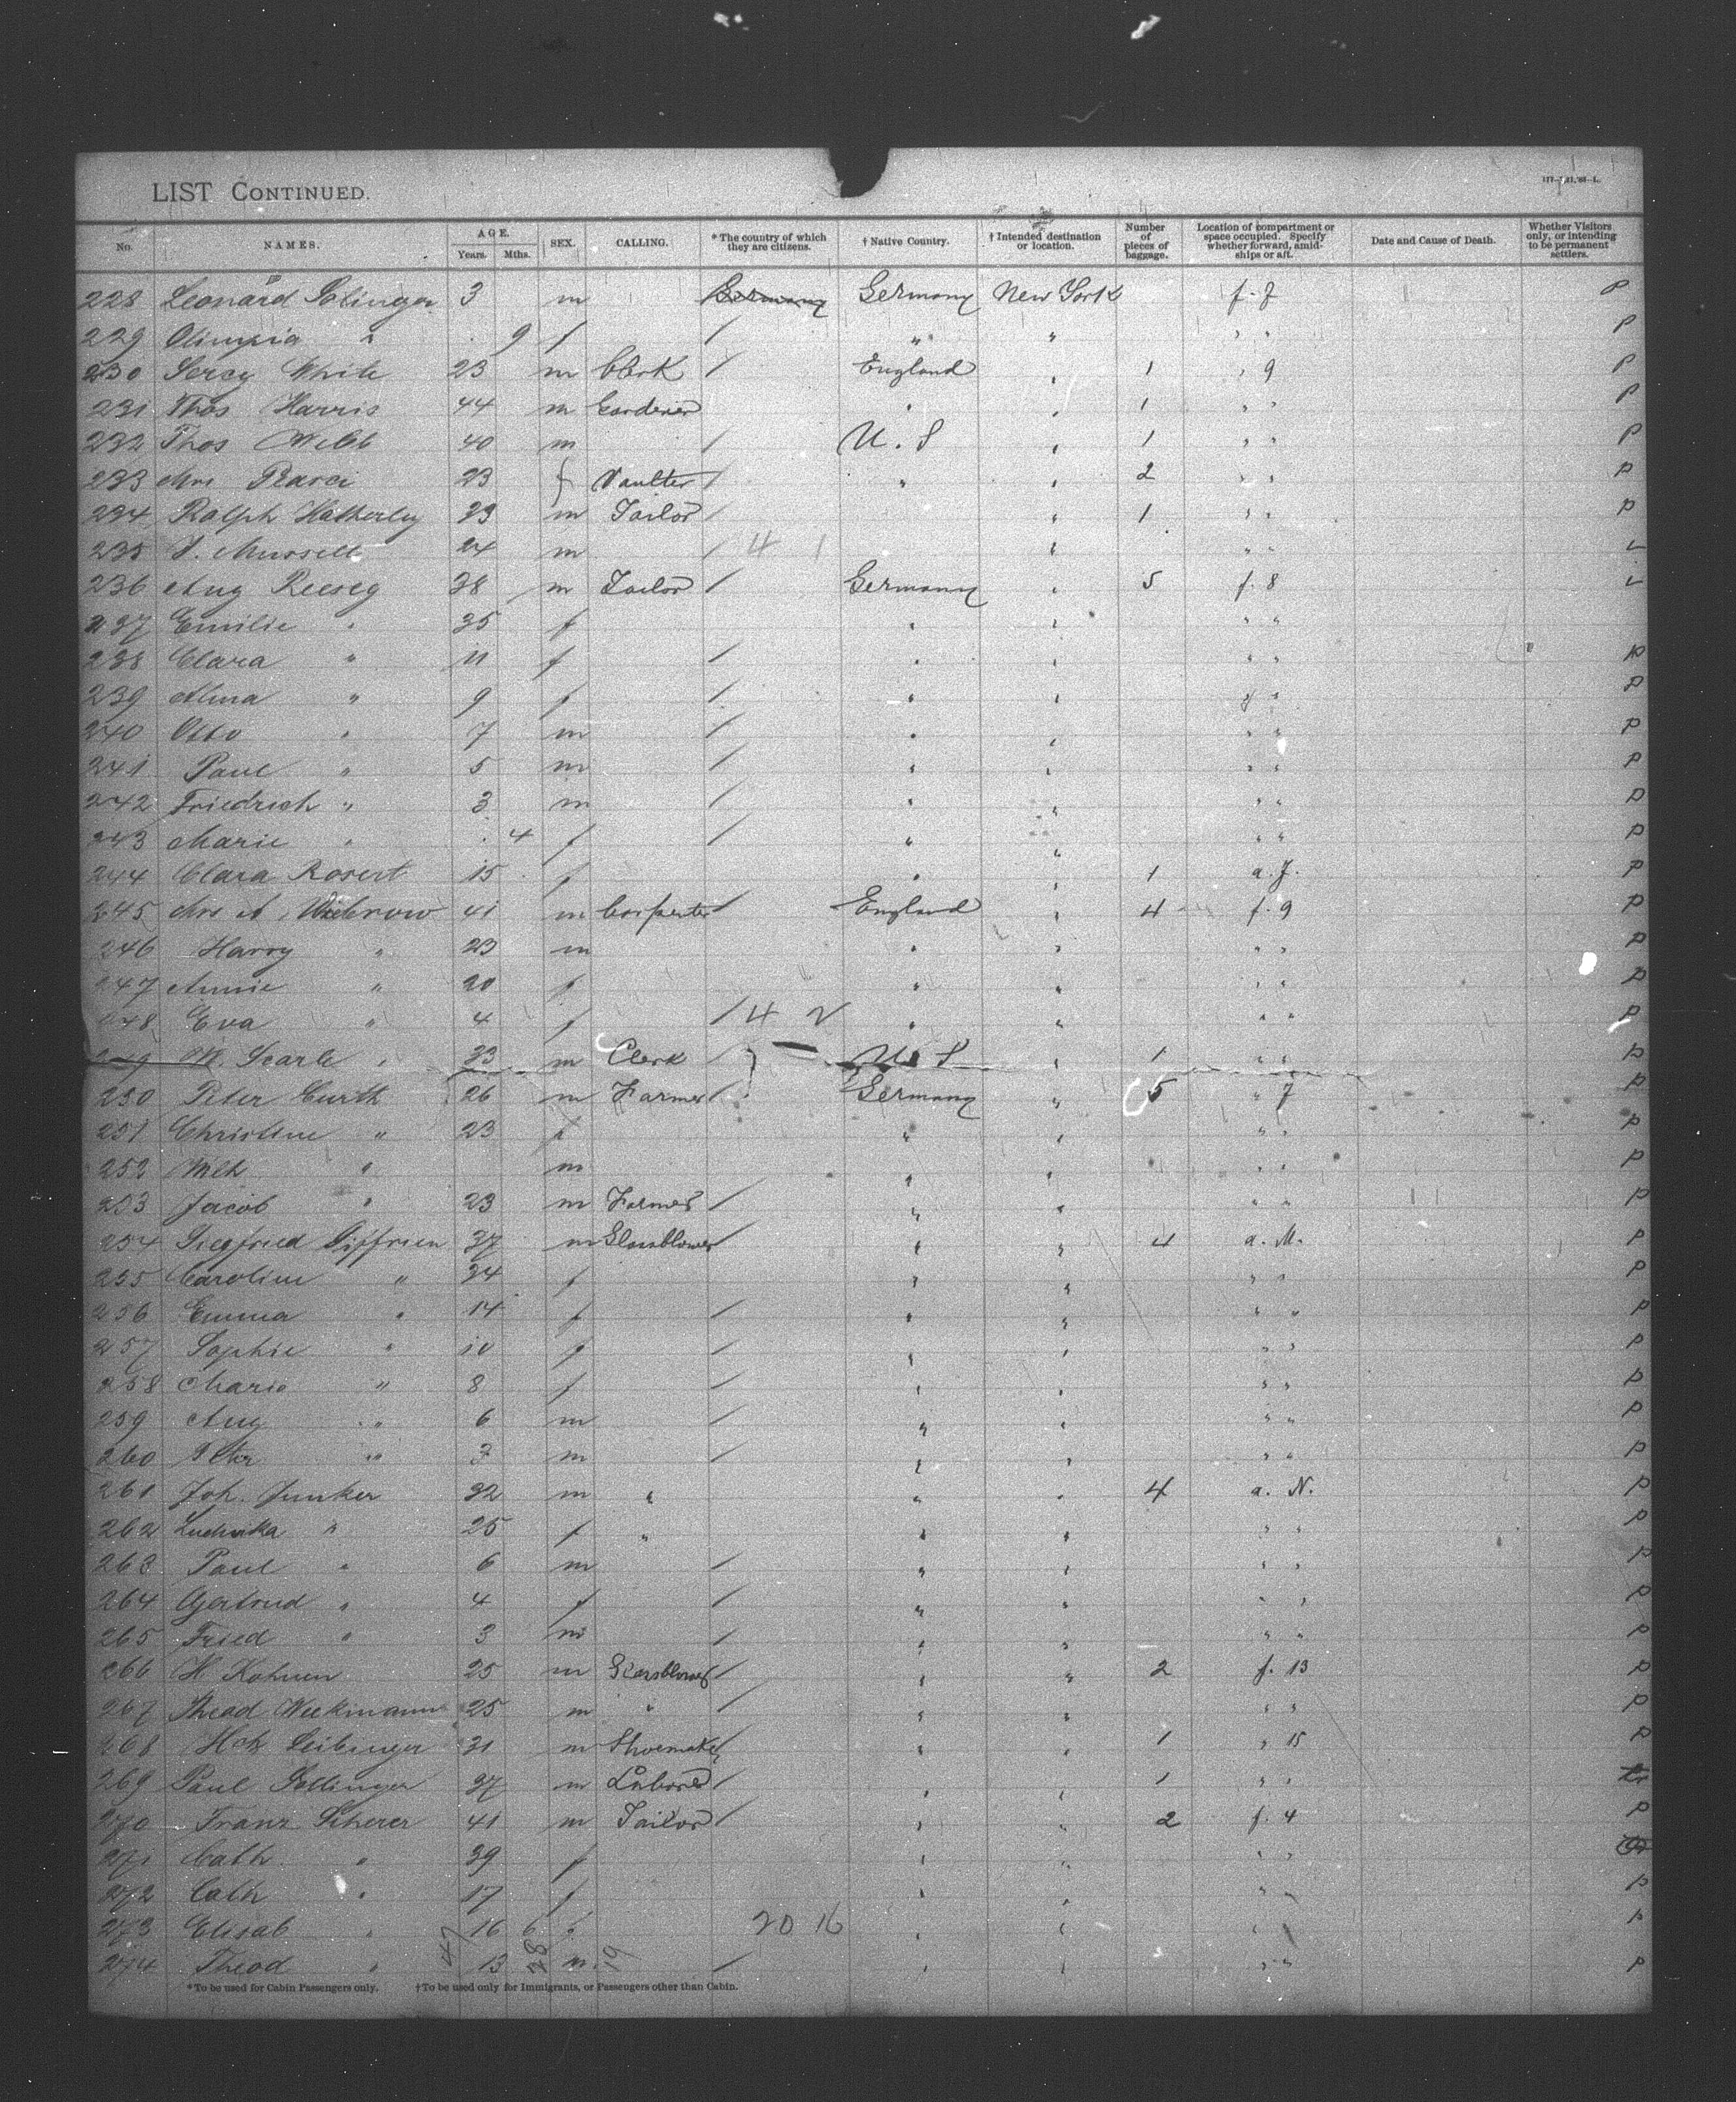 LIST CONTINUED.
No. NAMES. AGE. Years. Mths. SEX. CALLING. * The country of which they are citizens. † Native Country. † Intended destination or location. Number of pieces of baggage. Location of compartment or space occupied. Specify whether forward, amidships or aft. Date and Cause of Death. Whether Visitors only, or intending to be permanent settlers.
228 Leonard 3 m Germany Germany New York f. J P
229 Olimpia " 9 f / " " " " P
230 Percy White 23 m Clerk / England " 1 " 9 P
231 Thos Harris 44 m Gardener " " 1 " " P
232 Thos Webb 40 m / U. S " 1 " " P
233 Mrs 23 f / " " 2 " " P
234 Ralph Hatherley 29 m Tailor / " 1 " " P
235 24 m / 4 1 " " "
236 Aug Reeseg 38 m Tailor / Germany " 5 f. 8
237 Emilie " 35 f " " " "
238 Clara " 11 f / " " " " P
239 Alma " 9 f / " " " " P
240 Otto " 7 m / " " " " P
241 Paul " 5 m / " " " " P
242 Friedrich " 3 m / " " " " P
243 Marie " 4 f / " " " " P
244 Clara Rosert 15 f " " 1 a. J. P
245 41 m Carpenter / England " 4 f. 9 P
246 Harry " 23 m " " " " P
247 Annie " 20 f " " " " P
248 Eva " 4 f / 4 2 " " " " P
249 M. Searle 33 m Clerk / U. S " 1 " " P
250 Peter Curth 26 m Farmer / Germany " 5 " 7 P
251 Christine " 23 f " " " " P
252 Wilh " m " " " " P
253 Jacob " 23 m Farmer / " " " " P
254 Siegfried Giffrien 37 m Glassblower / " " 4 a. M. P
255 Caroline " 34 f " " " " P
256 Emma " 14 f / " " " " P
257 Sophie " 10 f / " " " " P
258 Marie " 8 f / " " " " P
259 Aug " 6 m / " " " " P
260 Peter " 3 m / " " " " P
261 Joh. Junker 32 m " " " 4 a. N. P
262 Ludwika " 25 f " " " " " P
263 Paul " 6 m / " " " " P
264 Gertrud " 4 f / " " " " P
265 Fried " 3 m / " " " " P
266 H Kohnen 25 m Glassblower / " " 2 f. 13 P
267 Thead Weekmann 25 m " / " " " " P
268 Hch Leibinger 31 m Shoemaker / " " 1 " 15 P
269 Paul 37 m Laborer / " " 1 " "
270 Franz Scherer 41 m Tailor / " " 2 f. 4 P
271 Cath " 39 f " " " "
272 Cath " 17 f " " " " P
273 Elisab " 16 6 f 20 16 " " " P
274 Theod " 13 m / " " " " P
47 28 19
* To be used for Cabin Passengers only. † To be used only for Immigrants, or Passengers other than Cabin.